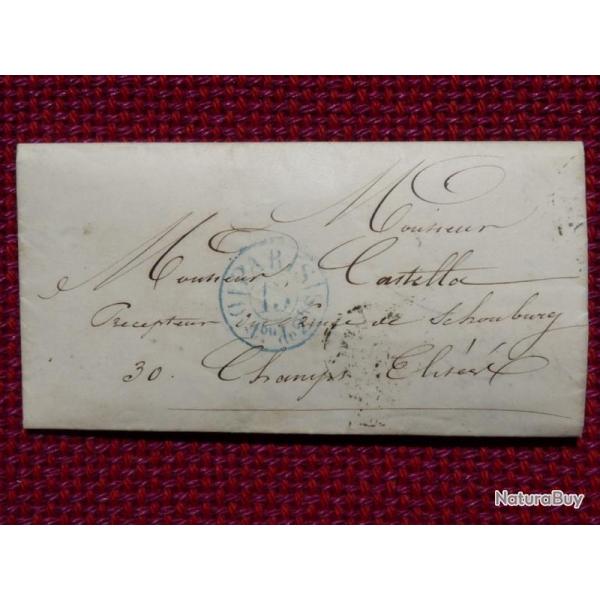 Monsieur
Monsieur Castella
Precepteur de Schonburg
30. Champs Elisées
PARIS
15
NaturaBuy